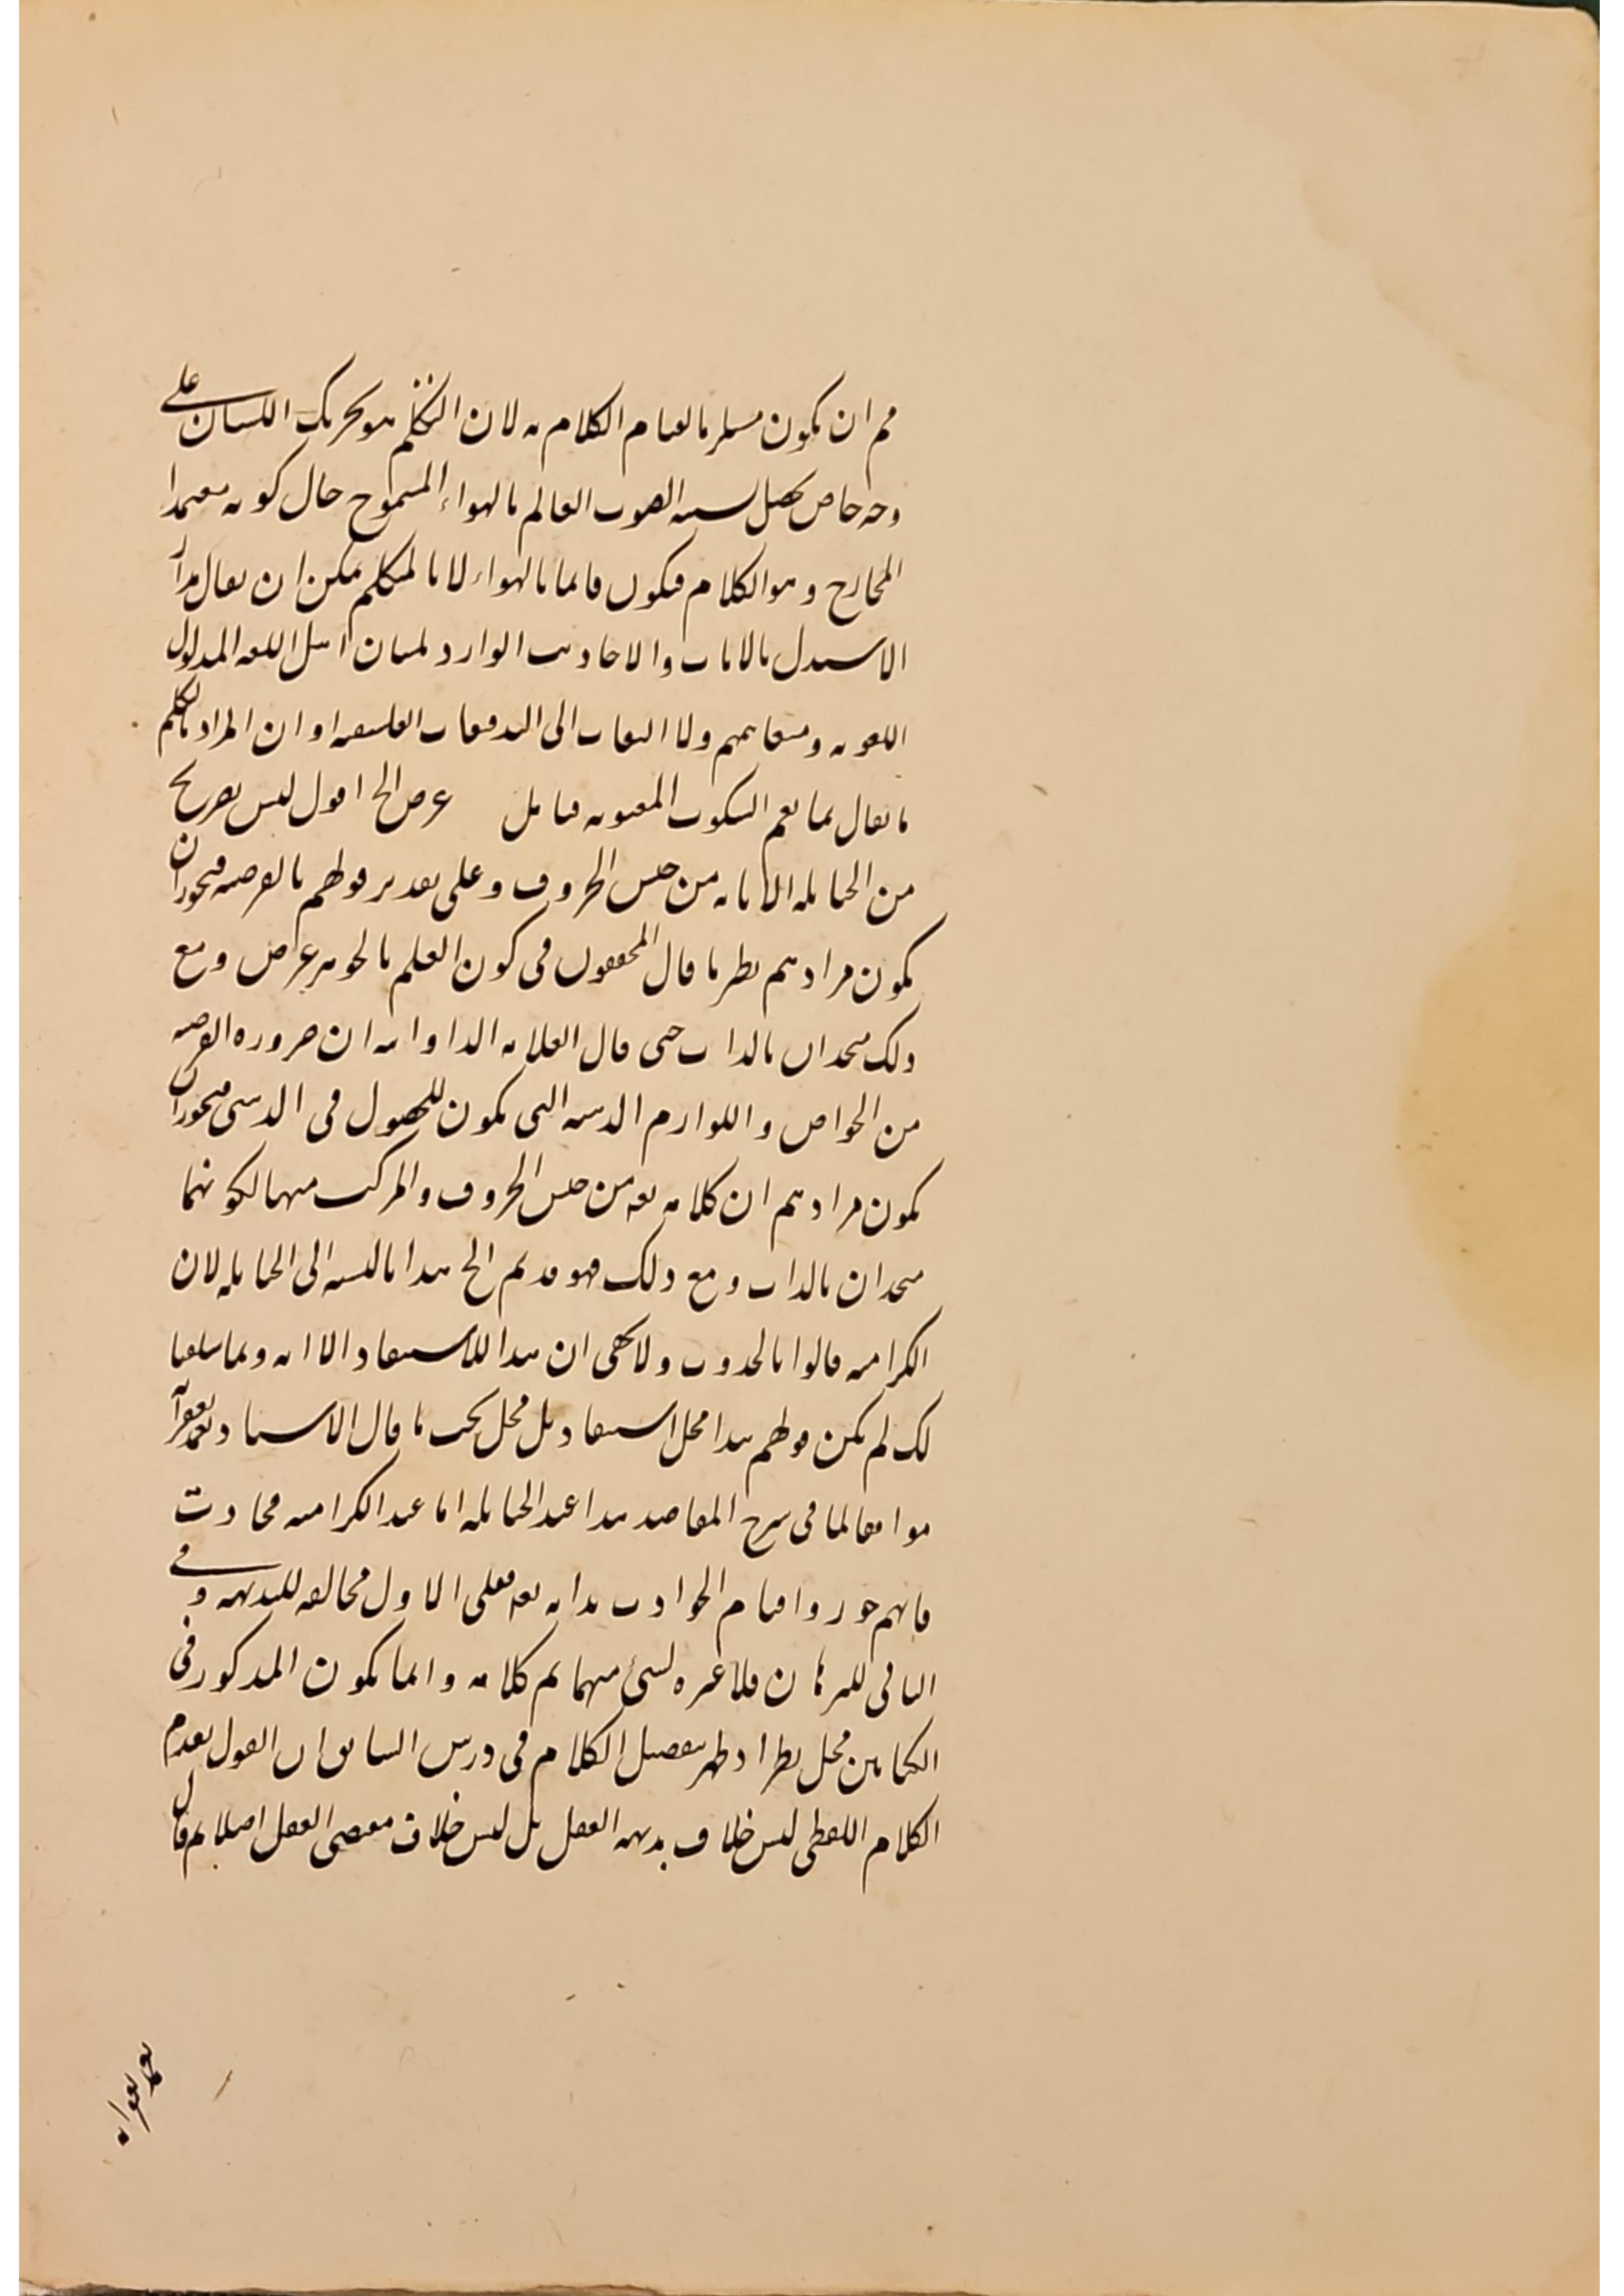 مم ان يكون مستلزما لقيام الكلام به لان التكلم هو تحريك اللسان على
وجه خاص يحصل بسببه الصوت القائم بالهواء المتموج حال كونه معتمدا
المخارج وهو الكلام فيكون قائما بالهواء لا بالمتكلم يمكن ان يقال مدار
الاستدل بالايات والاحاديث الوارد لسان اهل اللغة المدلول
اللغويه ومتفاهمهم ولا التفات الى التدقيقات الفلسفيه او ان المراد بالتكلم
ما يقال بما يعم السكوت المعنويه فتامل عرض الخ اقول ليس بصريح
من الحنابله الا بانه من جنس الحروف وعلى تقدير قولهم بالعرضيه فيجوز ان
يكون مرادهم نظير ما قال المحققون فى كون العلم بالجوهر عرض ومع
ذلك متحدان بالذات حتى قال العلامه الداوانيه ان ضروره العرضيه
من الخواص واللوازم الذهنيه التى يكون للحصول فى الذهنى فيجوز ان
يكون مرادهم ان كلامه تعه من جنس الحروف والمركب منهما لكونهما
متحدان بالذات ومع ذلك فهو قديم الخ هذا بالنسبه الى الحنابله لان
الكراميه قالوا بالحدوث ولا يخفى ان هذا للاستبعاد الا انه وبما تلقينا
لك لم يكن قولهم هذا محل استبعاد بل محل بحث ما قال الاستاد نغمد بغفرانه
موافقا لما فى شرح المقاصد هذا عند الحنابله اما عند الكراميه فحادث
فانهم جوزوا قيام الحوادث بذاته تعه فعلى الاول مخالفه للبديهه وفى
الثانى للبرهان فلا عبره لشئ منهما ثم كلامه وانما يكون المذكور فى
الكتابين محل نظر اذ ظهر بتفصيل الكلام فى درس السابق ان القول بقدم
الكلام اللفظى ليس خلاف بديهه العقل بل ليس خلاف مقتضى العقل اصلا ثم قال
نغمد بغفرانه